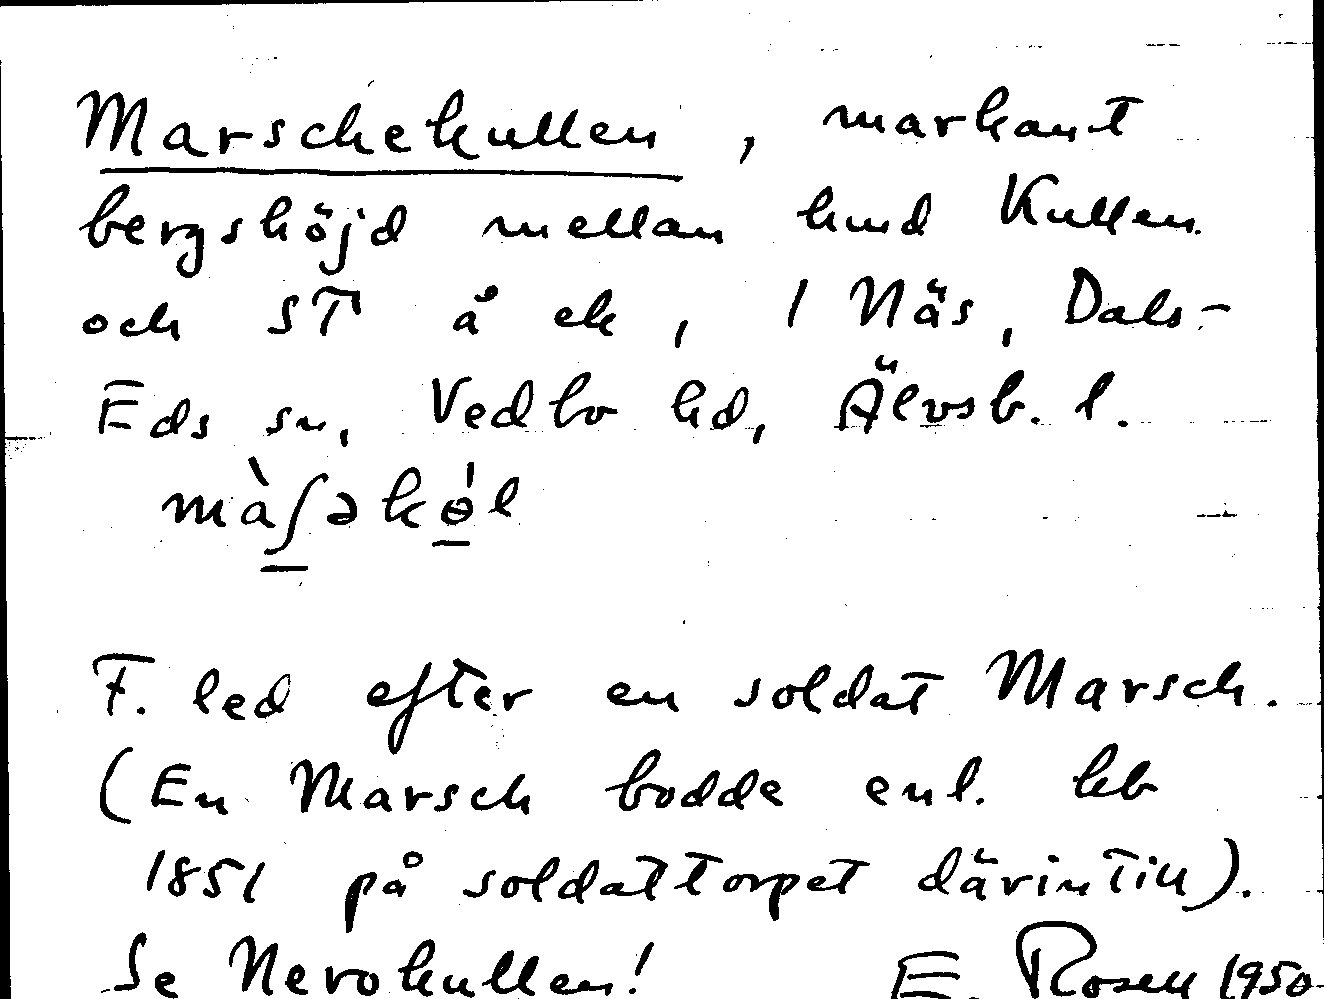 Marschekullen, markant
bergshöjd mellan hmd Kullen
och ST å ek, 1 Näs, Dals-
Eds sn, Vedbo hd, Älvsb. l.
màʃəkɵ́l
F. led efter en soldat Marsch.
(En Marsch bodde enl. hb
1851 på soldattorpet därintill).
Se Nerokullen! E. Rosell 1950